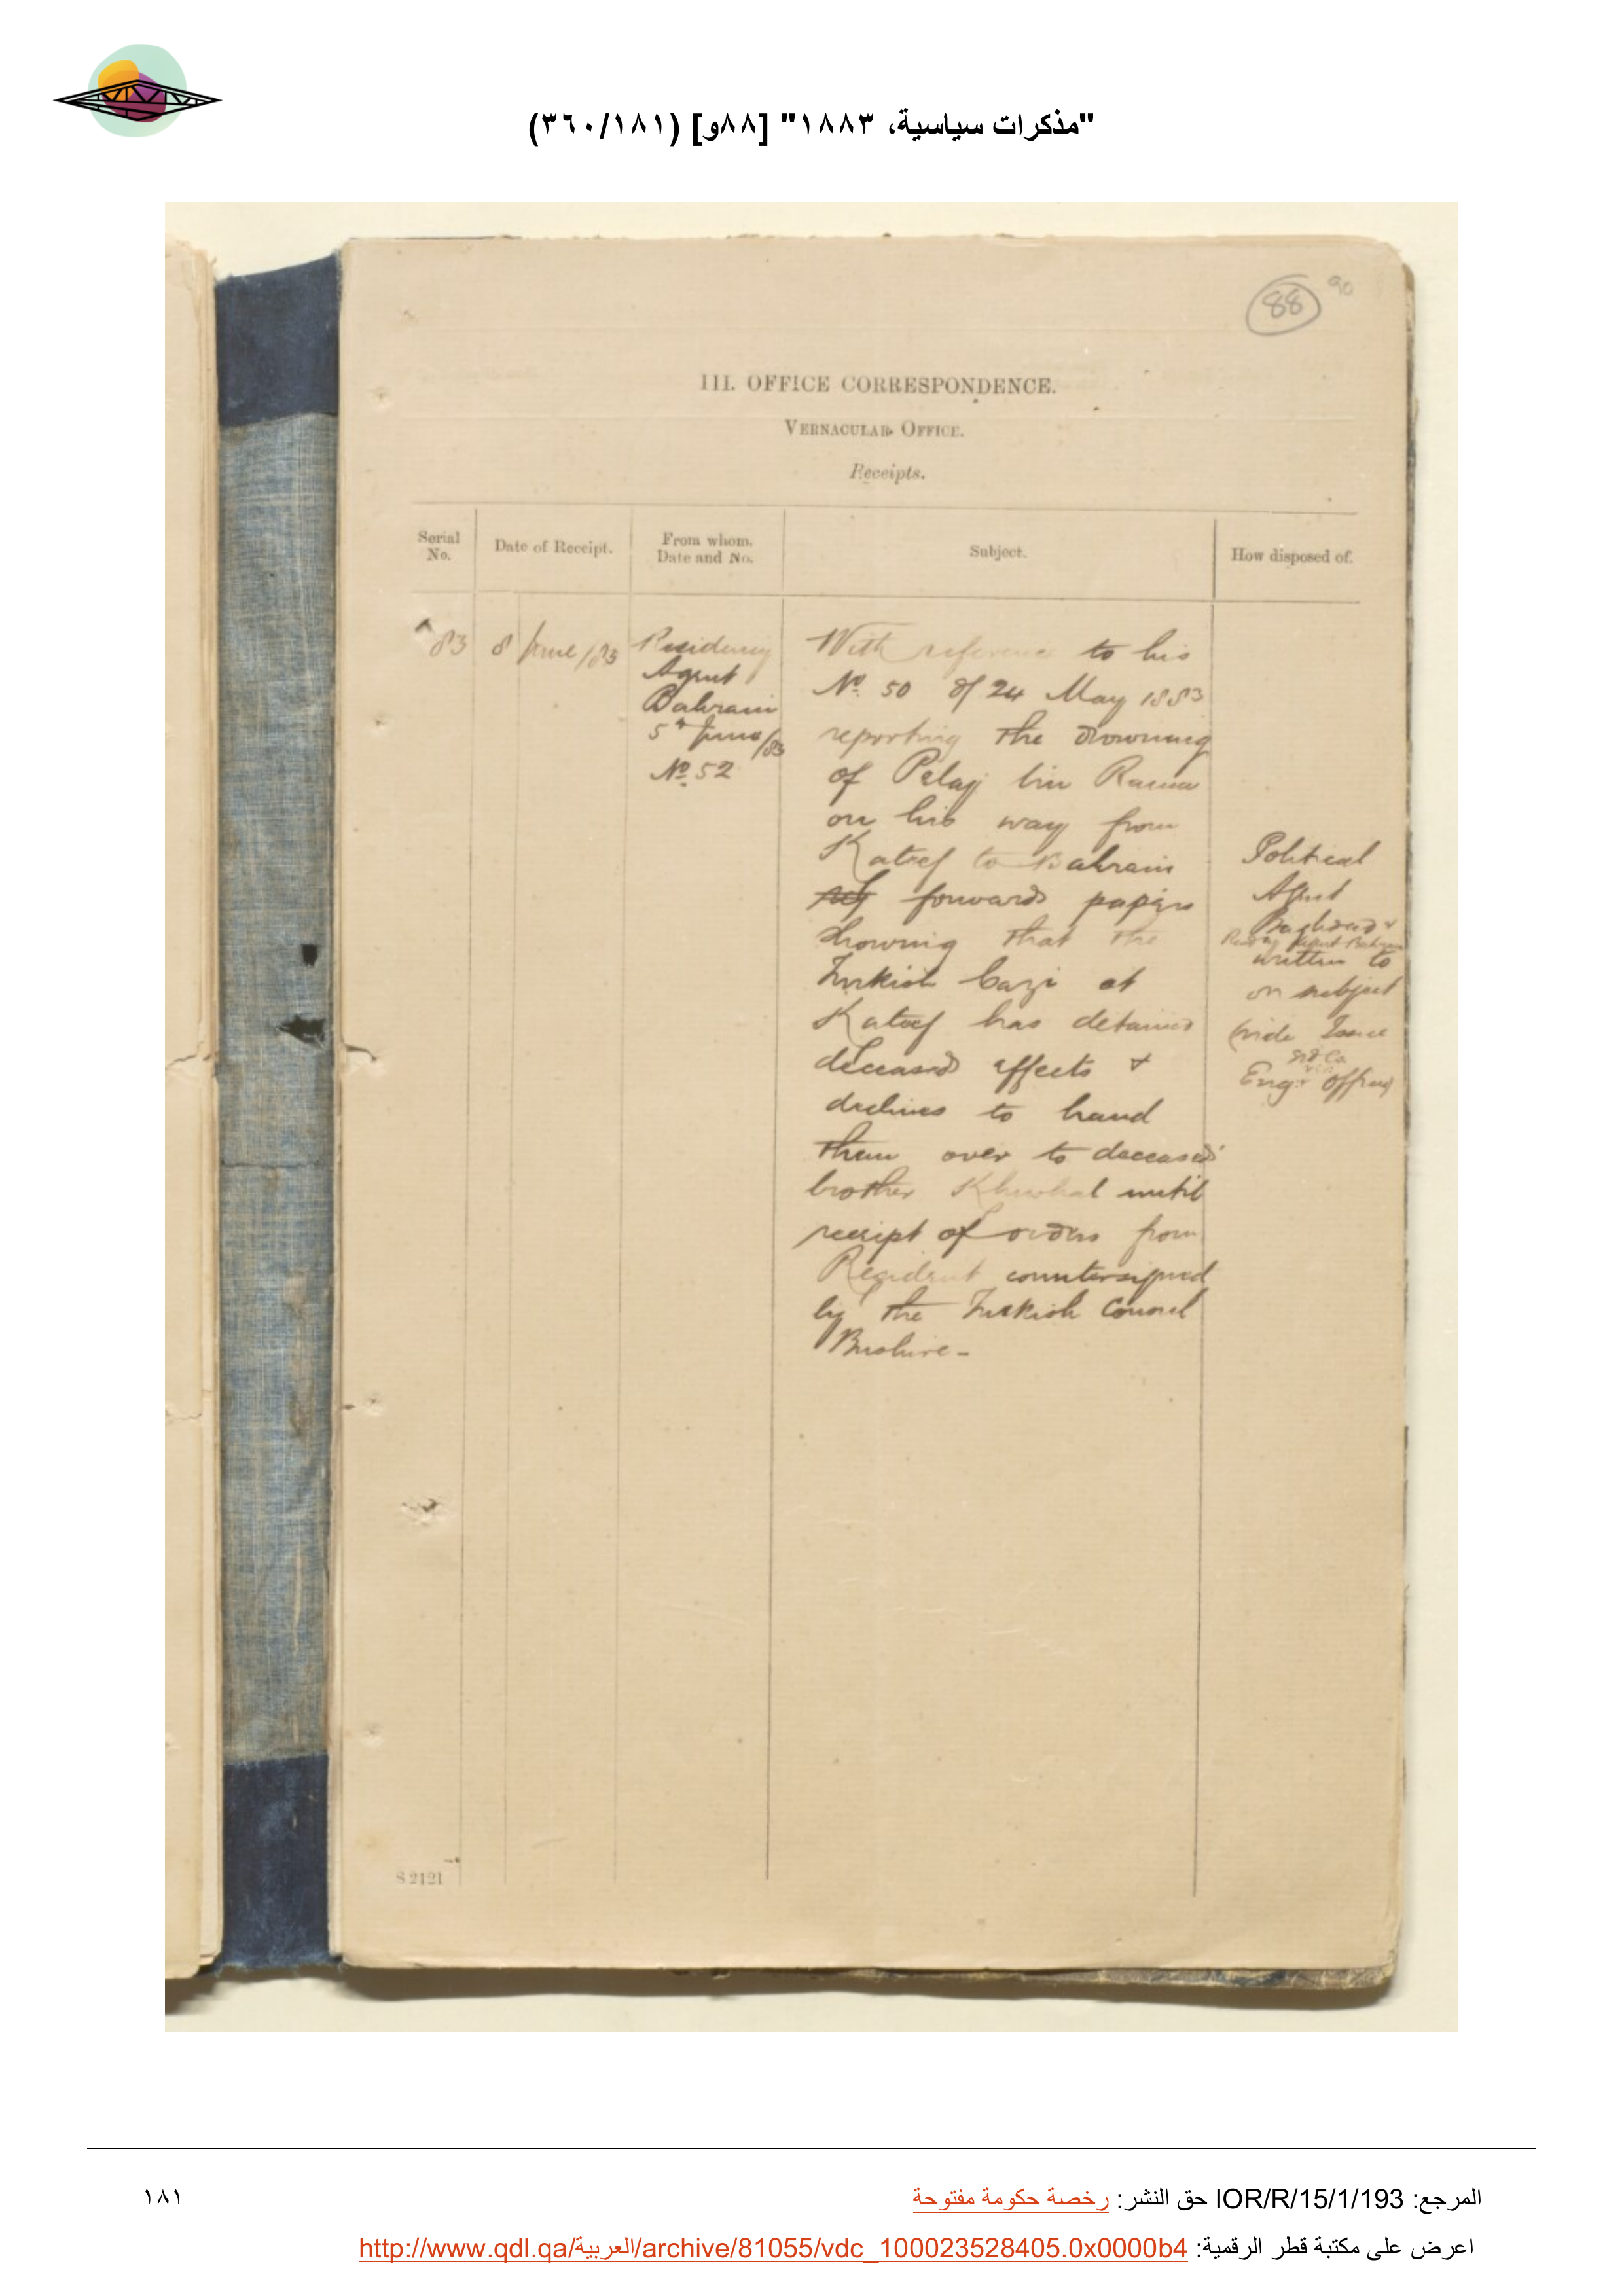 "مذكرات سياسية، ١٨٨٣" [٨٨و] (٣٦٠/١٨١)
88
90
III. OFFICE CORRESPONDENCE.
VERNACULAR OFFICE.
Receipts.
Serial No.
Date of Receipt.
From whom, Date and No.
Subject.
How disposed of.
83
8 June /83
Residency
Agent
Bahrain
5th June /83
No. 52
With reference to his
No. 50 of 24 May 1883
reporting the drowning
of Pelaj bin Rama
on his way from
Kateef to Bahrain
forwards papers
showing that the
Turkish Cazi at
Kateef has detained
deceased effects &
declines to hand
them over to deceased's
brother Khushal until
receipt of orders from
Resident countersigned
by the Turkish Consul
Bushire -
Political
Agent
Baghdad &
Resdy Agent Bahrain
written to
on subject
(vide Issue
Engr. office)
S 2121
المرجع: IOR/R/15/1/193 حق النشر: رخصة حكومة مفتوحة
١٨١
اعرض على مكتبة قطر الرقمية: http://www.qdl.qa/العربية/archive/81055/vdc_100023528405.0x0000b4